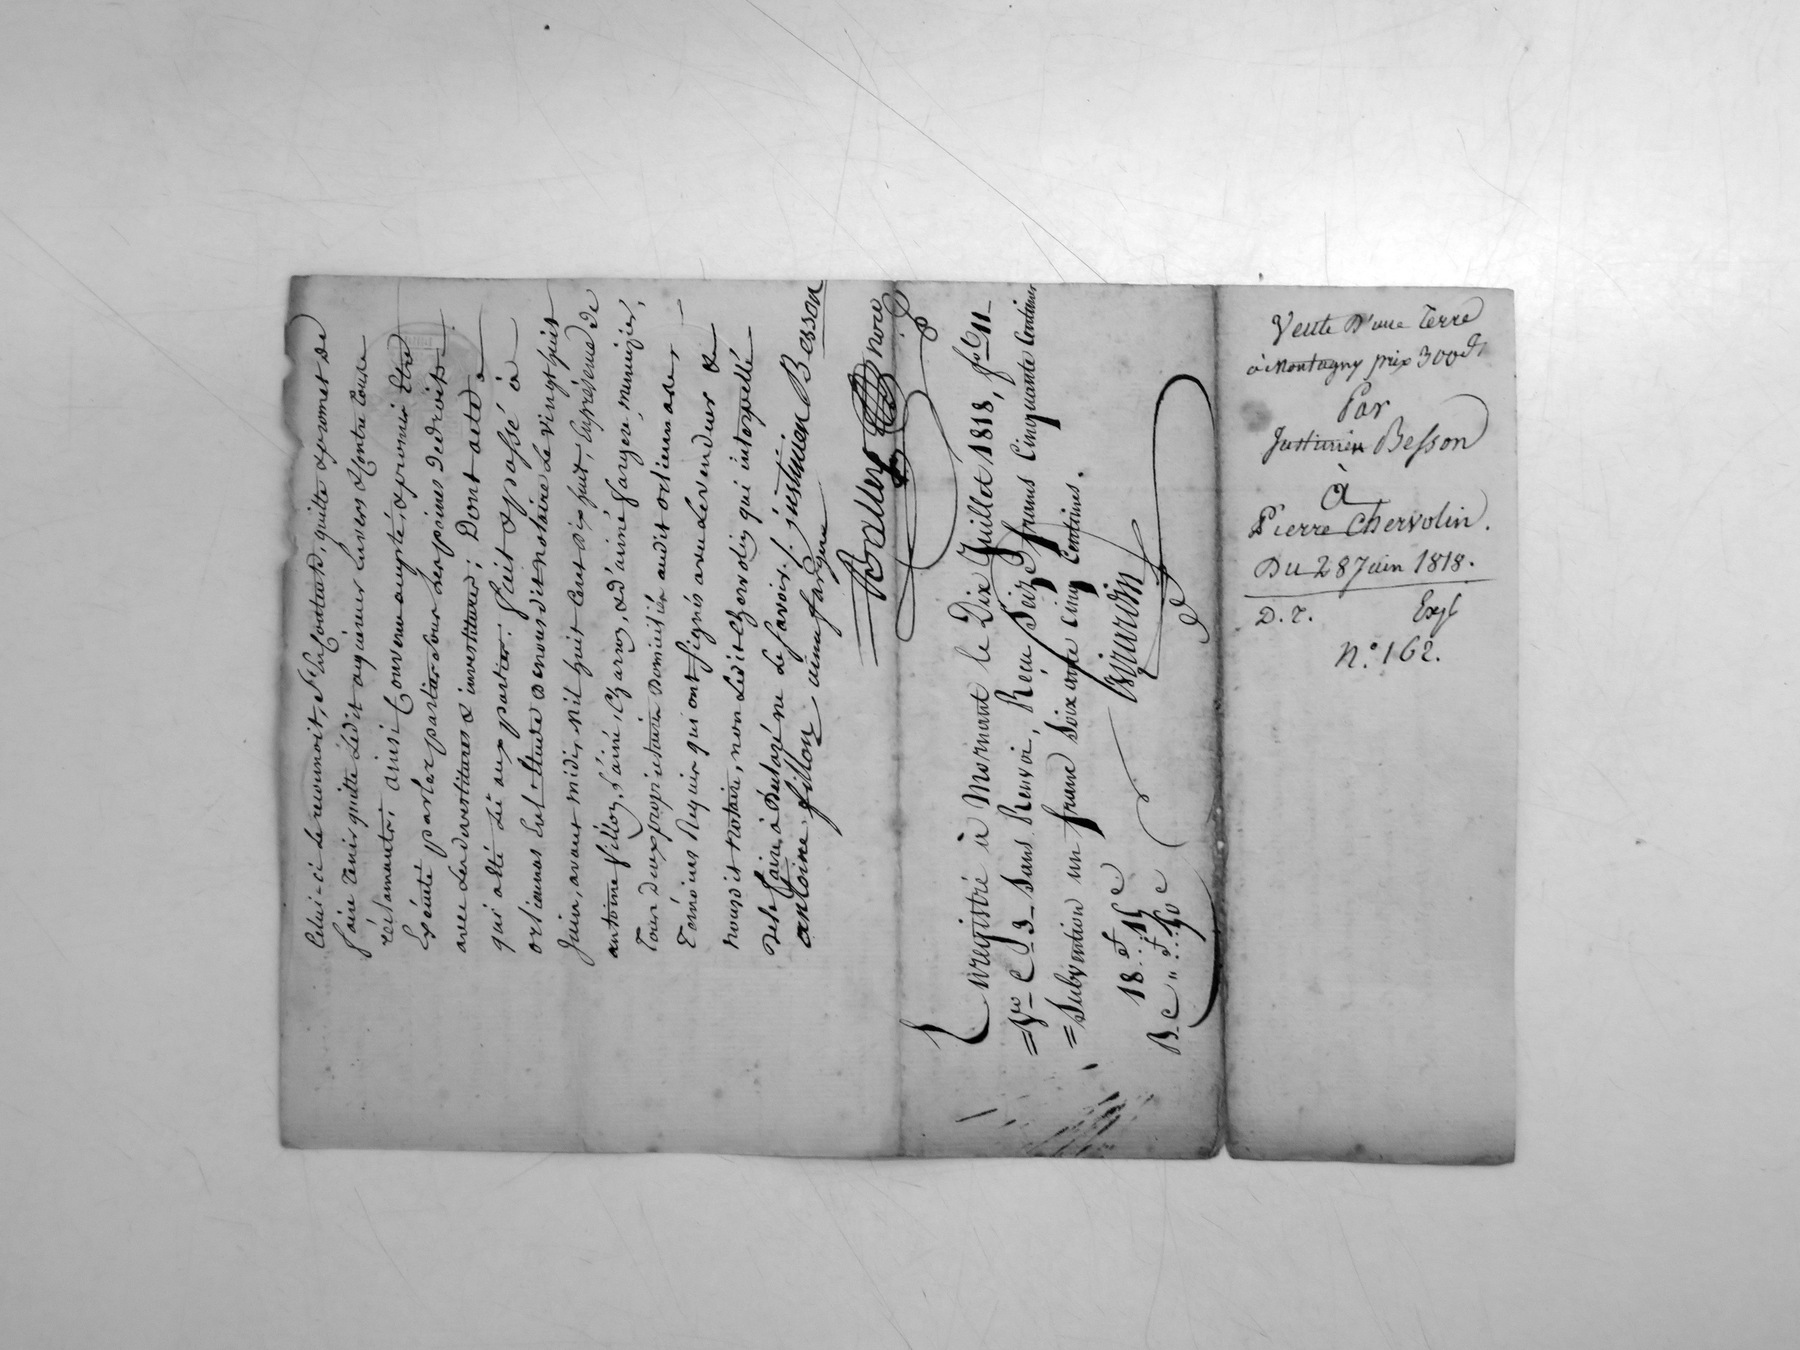 Celui-ci le reconnoit, s'en contente, quitte & promet de
faire tenir quitte ledit acquereur envers & contre tous
réclamants; ainsi convenu accepté, & promis être
Exécuté par les parties sous les peines de droit
avec les devestitures & investitures; Dont acte
qui a été lû aux parties. fait & passé à
orliennas en l'Etude de nousdit notaire le vingt huit
Juin, avant midi, Mil huit Cent dix huit, En présence de
antoine fillon, & d'aimé fargere, menuisier,
Tous deux propriétaires Domiciliés audit orliennas,
Témoins Requis, qui ont signés avec le vendeur &
nousdit Notaire, non ledit Chervolin qui interpellé
De le faire, à Declaré ne le savoir. justinien Besson
antoine fillon aimé fargere
Enregistré à Mornant le Dix Juillet 1818, f.o 911
V.o C. 3 Sans Renvoi, Reçu Seize francs Cinquante Centimes
= Subvention un franc Soixante cinq Centimes.
18.f 15c
Vente D'une Terre
à Montagny prix 300 f
Par
Justinien Besson
à
Pierre Chervolin.
Du 28 Juin 1818.
D. T. Exp
N.o 162.